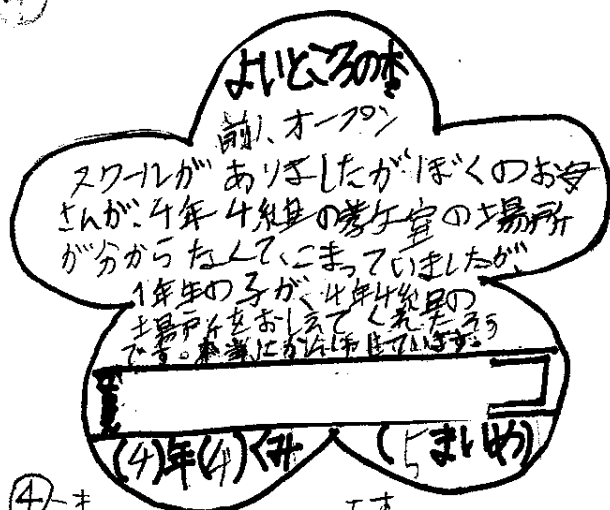 よいところの木
前、オープン
スクールがありましたが、ぼくのお母
さんが、4年4組の教室の場所
が分からなくて、こまっていましたが、
1年生の子が、4年4組の
場所をおしえてくれたそう
です。本当にかんしゃしています。
(4)年(4)くみ (5まいめ)
④